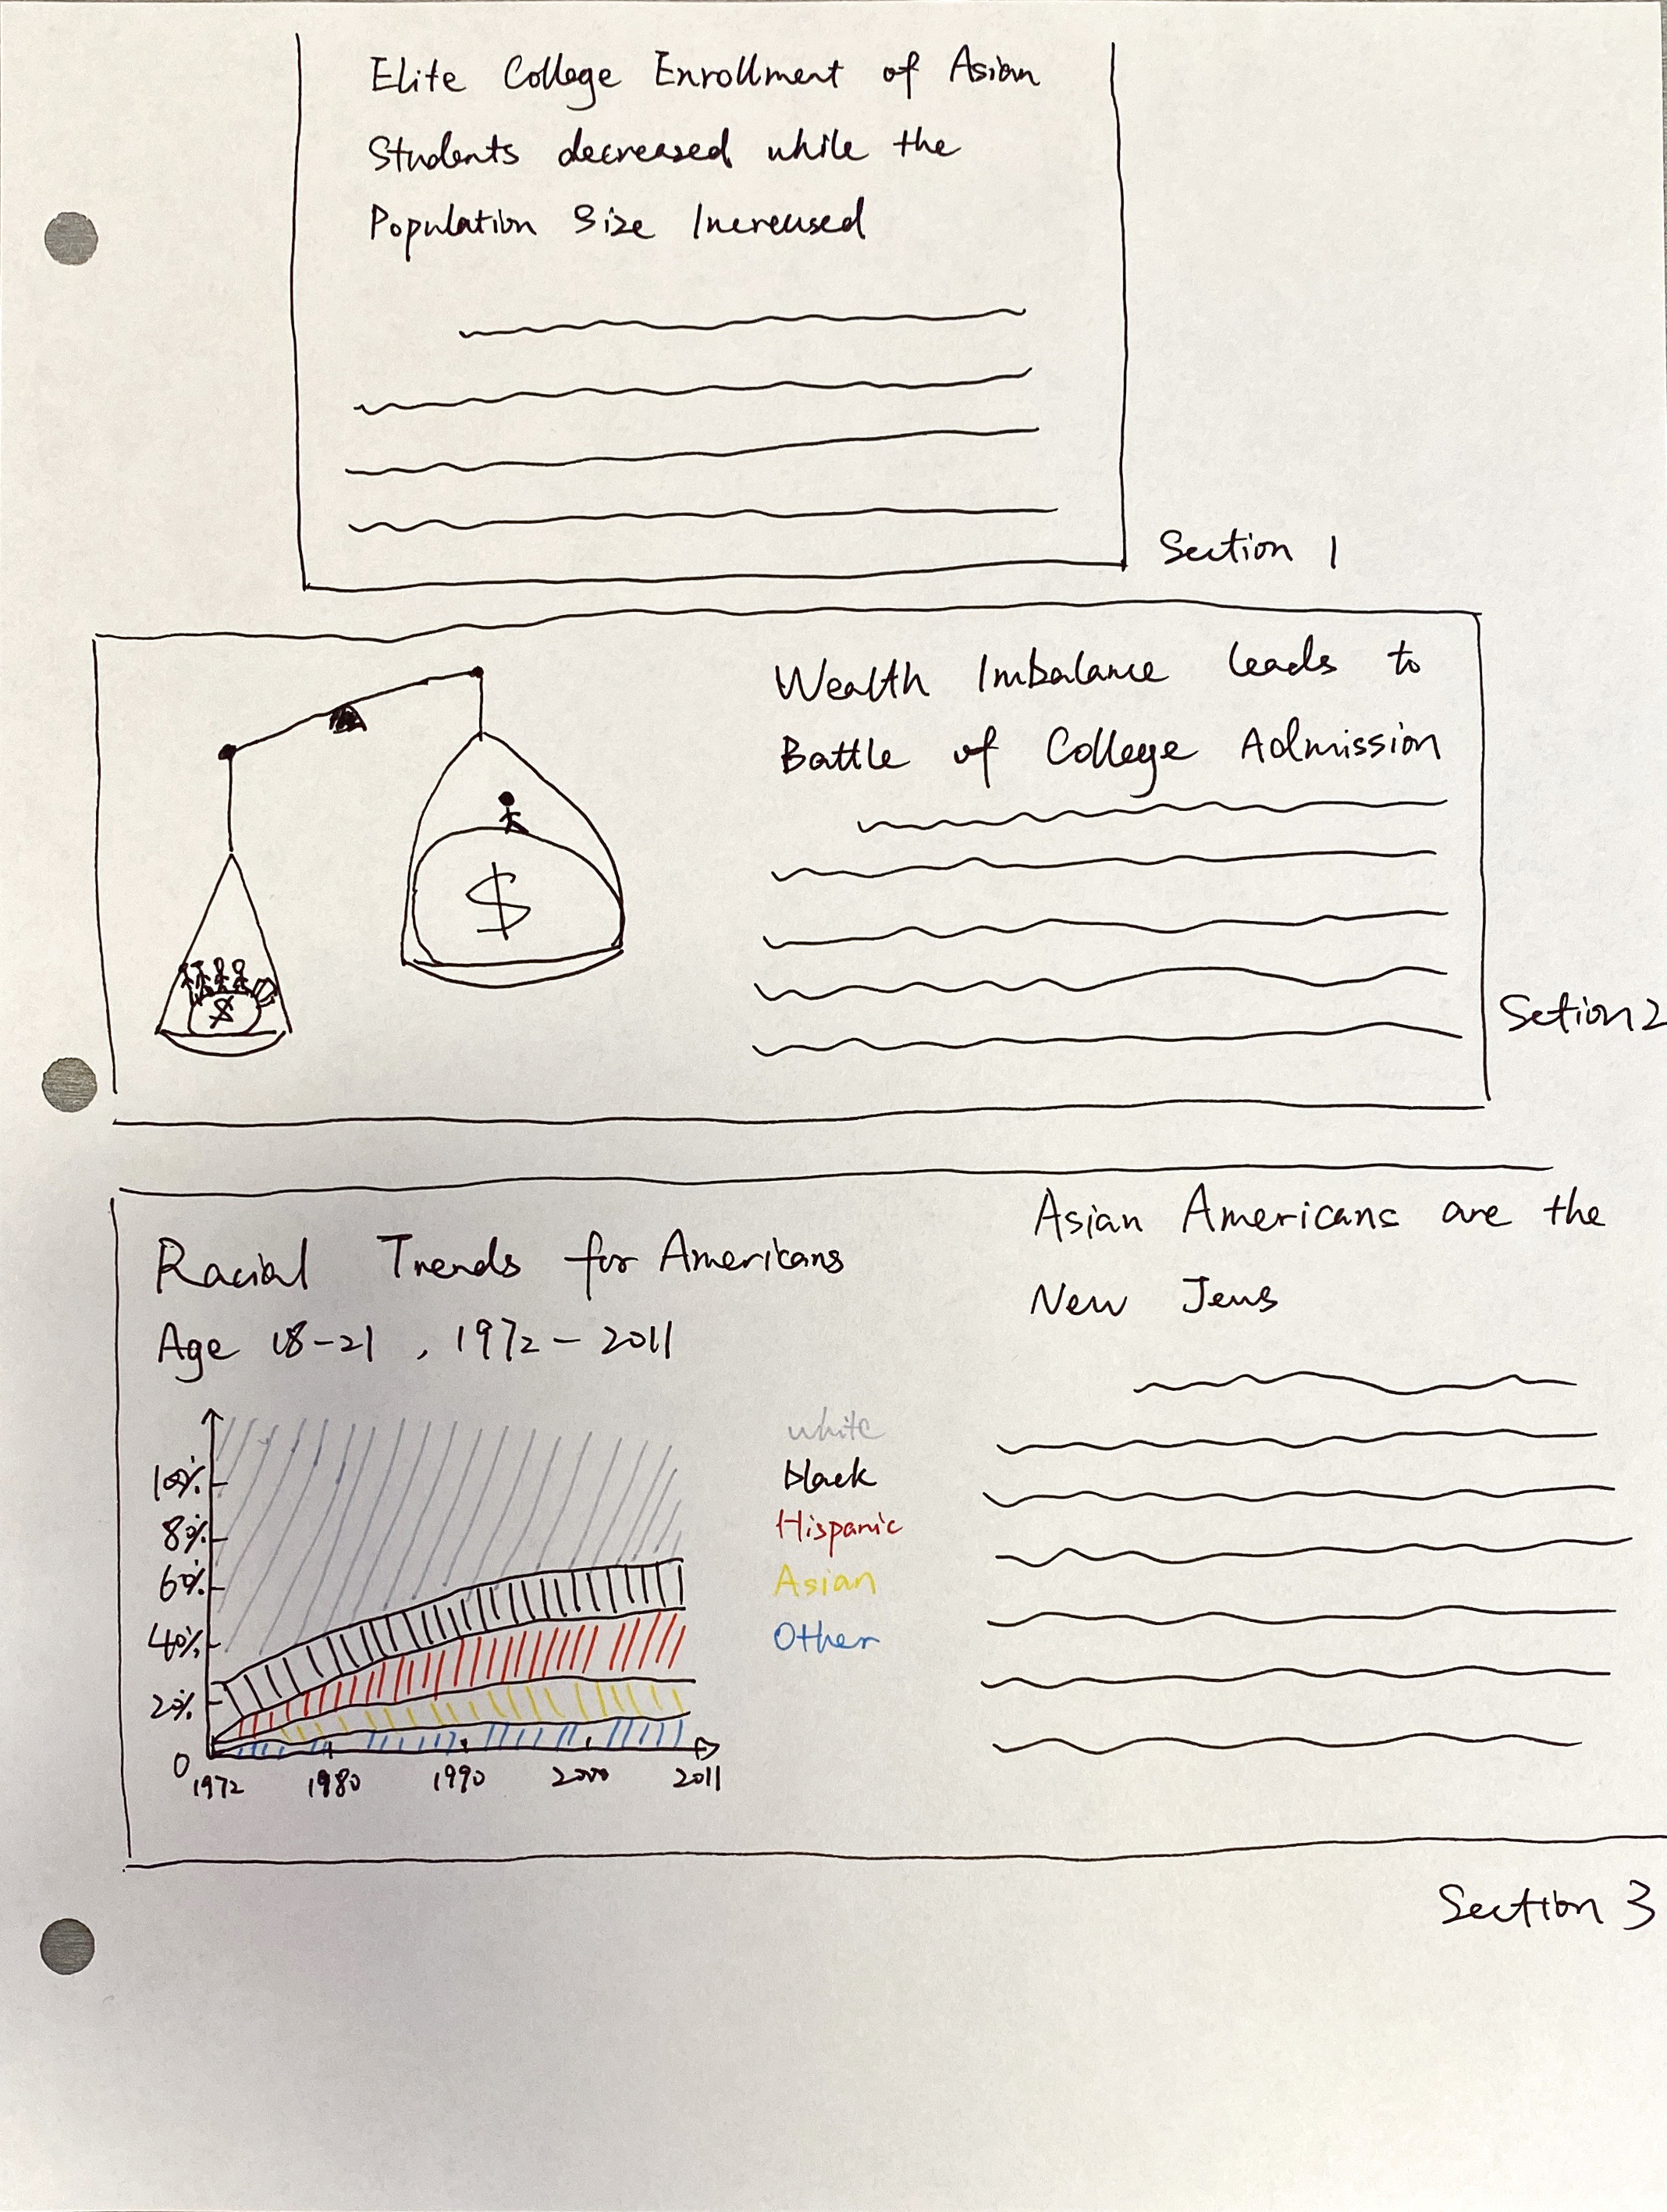 Elite College Enrollment of Asian
Students decreased while the
Population Size Increased
Section 1
$
$
Wealth Imbalance leads to
Battle of College Admission
Setion 2
Racial Trends for Americans
Age 18-21, 1972-2011
100%
80%
60%
40%
20%
0
1972 1980 1990 2000 2011
white
black
Hispanic
Asian
Other
Asian Americans are the
New Jews
Section 3